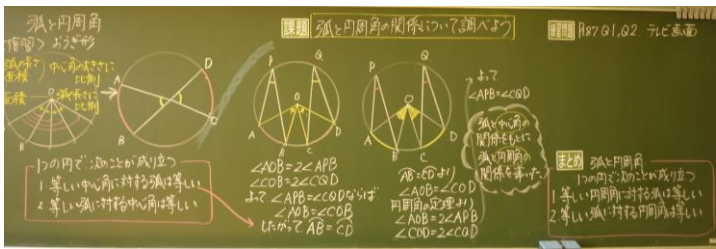 弧と円周角
<復習> おうぎ形
弧の長さ
面積
中心角の大きさに
比例
面積
弧の長さに
比例
A
D
O
B
C
1つの円で次のことが成り立つ
1. 等しい中心角に対する弧は等しい
2. 等しい弧に対する中心角は等しい
課題 弧と円周角の関係について調べよう
P
Q
O
A
B
C
D
∠AOB=2∠APB
∠COD=2∠CQD
よって ∠APB=∠CQDならば
∠AOB=∠COD
したがって AB=CD
P
Q
O
A
B
C
D
AB=CDより
∠AOB=∠COD
円周角の定理より
∠AOB=2∠APB
∠COD=2∠CQD
よって
∠APB=∠CQD
弧と中心角の
関係をもとに
弧と円周角の
関係を導いた
練習問題 P.87 Q1.Q2. テレビ画面
まとめ 弧と円周角
1つの円で次のことが成り立つ
1. 等しい円周角に対する弧は等しい
2. 等しい弧に対する円周角は等しい